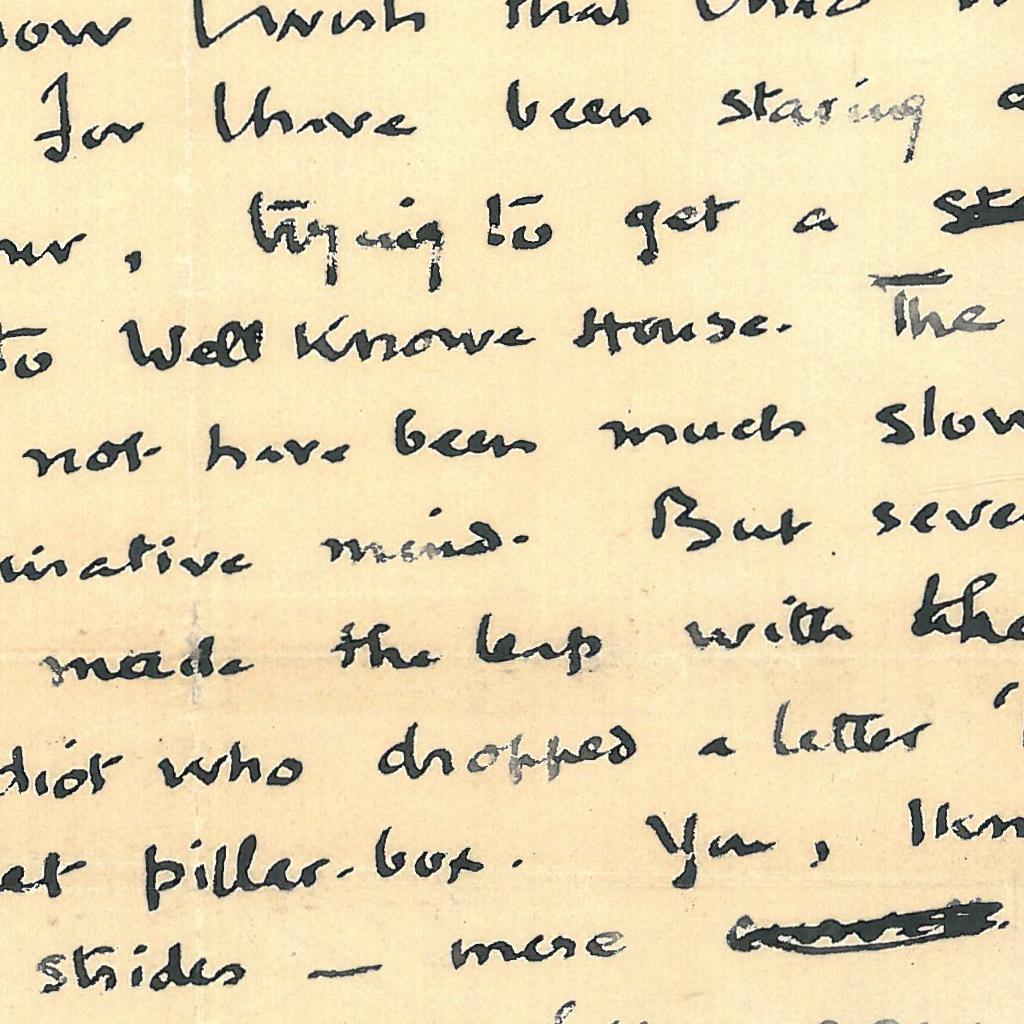 now I wish that this
For I have been staring
, trying to get a
to Well Knowe House. The
not have been much slow
inative mind. But seve
made the leap with the
diot who dropped a letter
et pillar-box. You, I kn
strides — mere